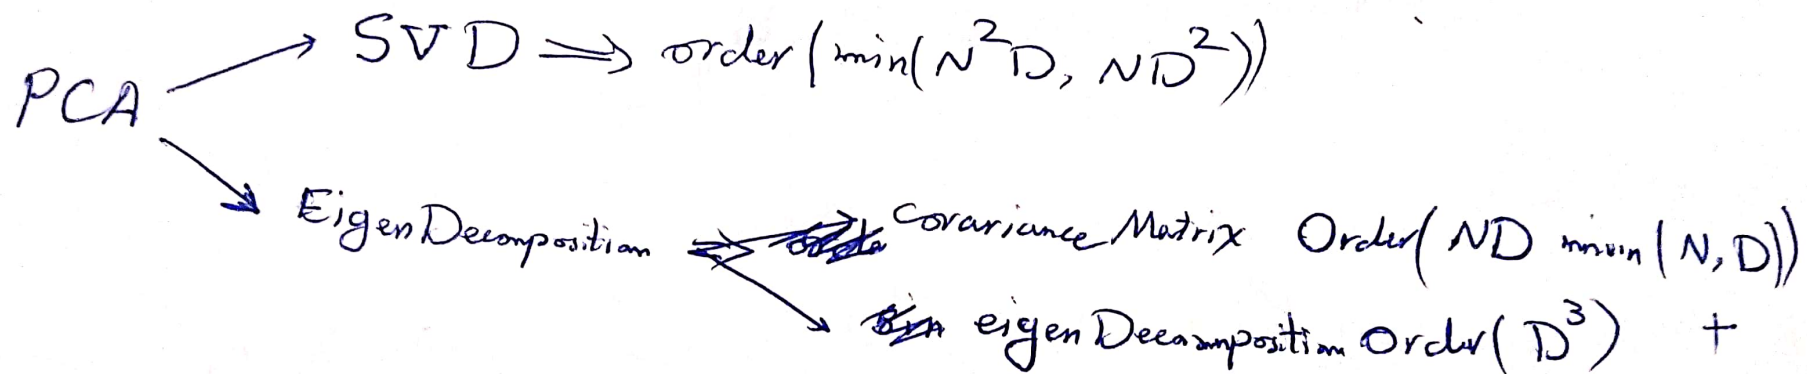 PCA
SVD ⇒ order(min(N²D, ND²))
EigenDecomposition ⇒ Covariance Matrix Order(ND min(N,D))
eigenDecomposition Order(D³) +